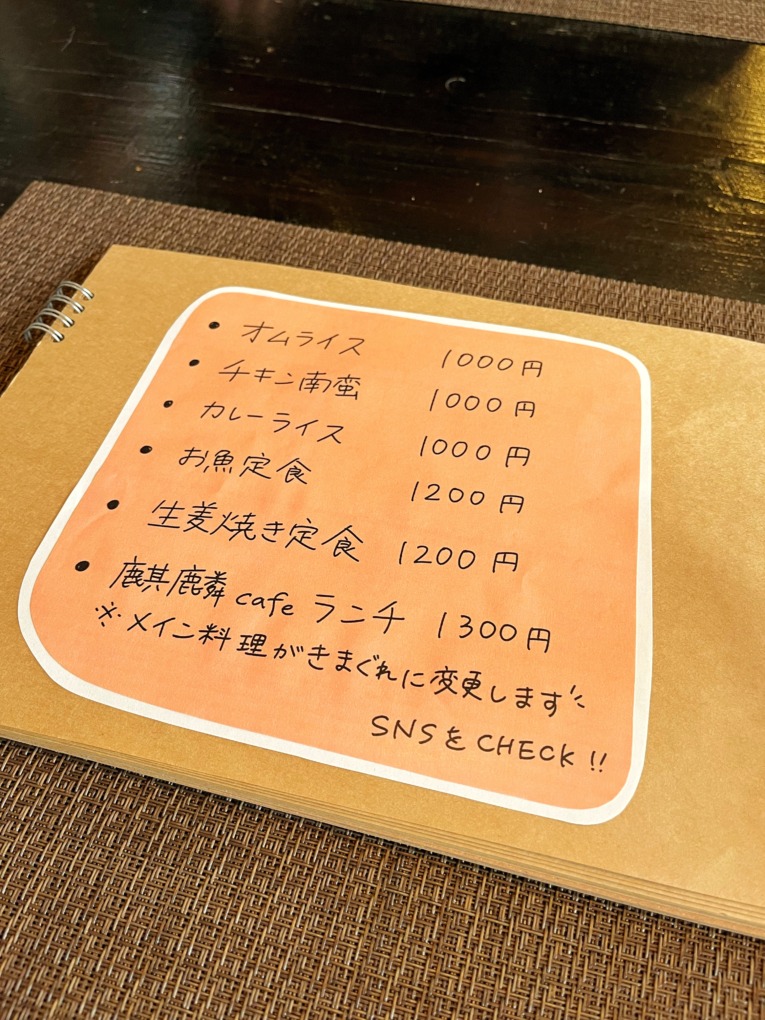 • オムライス 1000円
• チキン南蛮 1000円
• カレーライス 1000円
• お魚定食 1200円
• 生姜焼き定食 1200円
• 麒麟cafeランチ 1300円
※メイン料理がきまぐれに変更します
SNSをCHECK!!